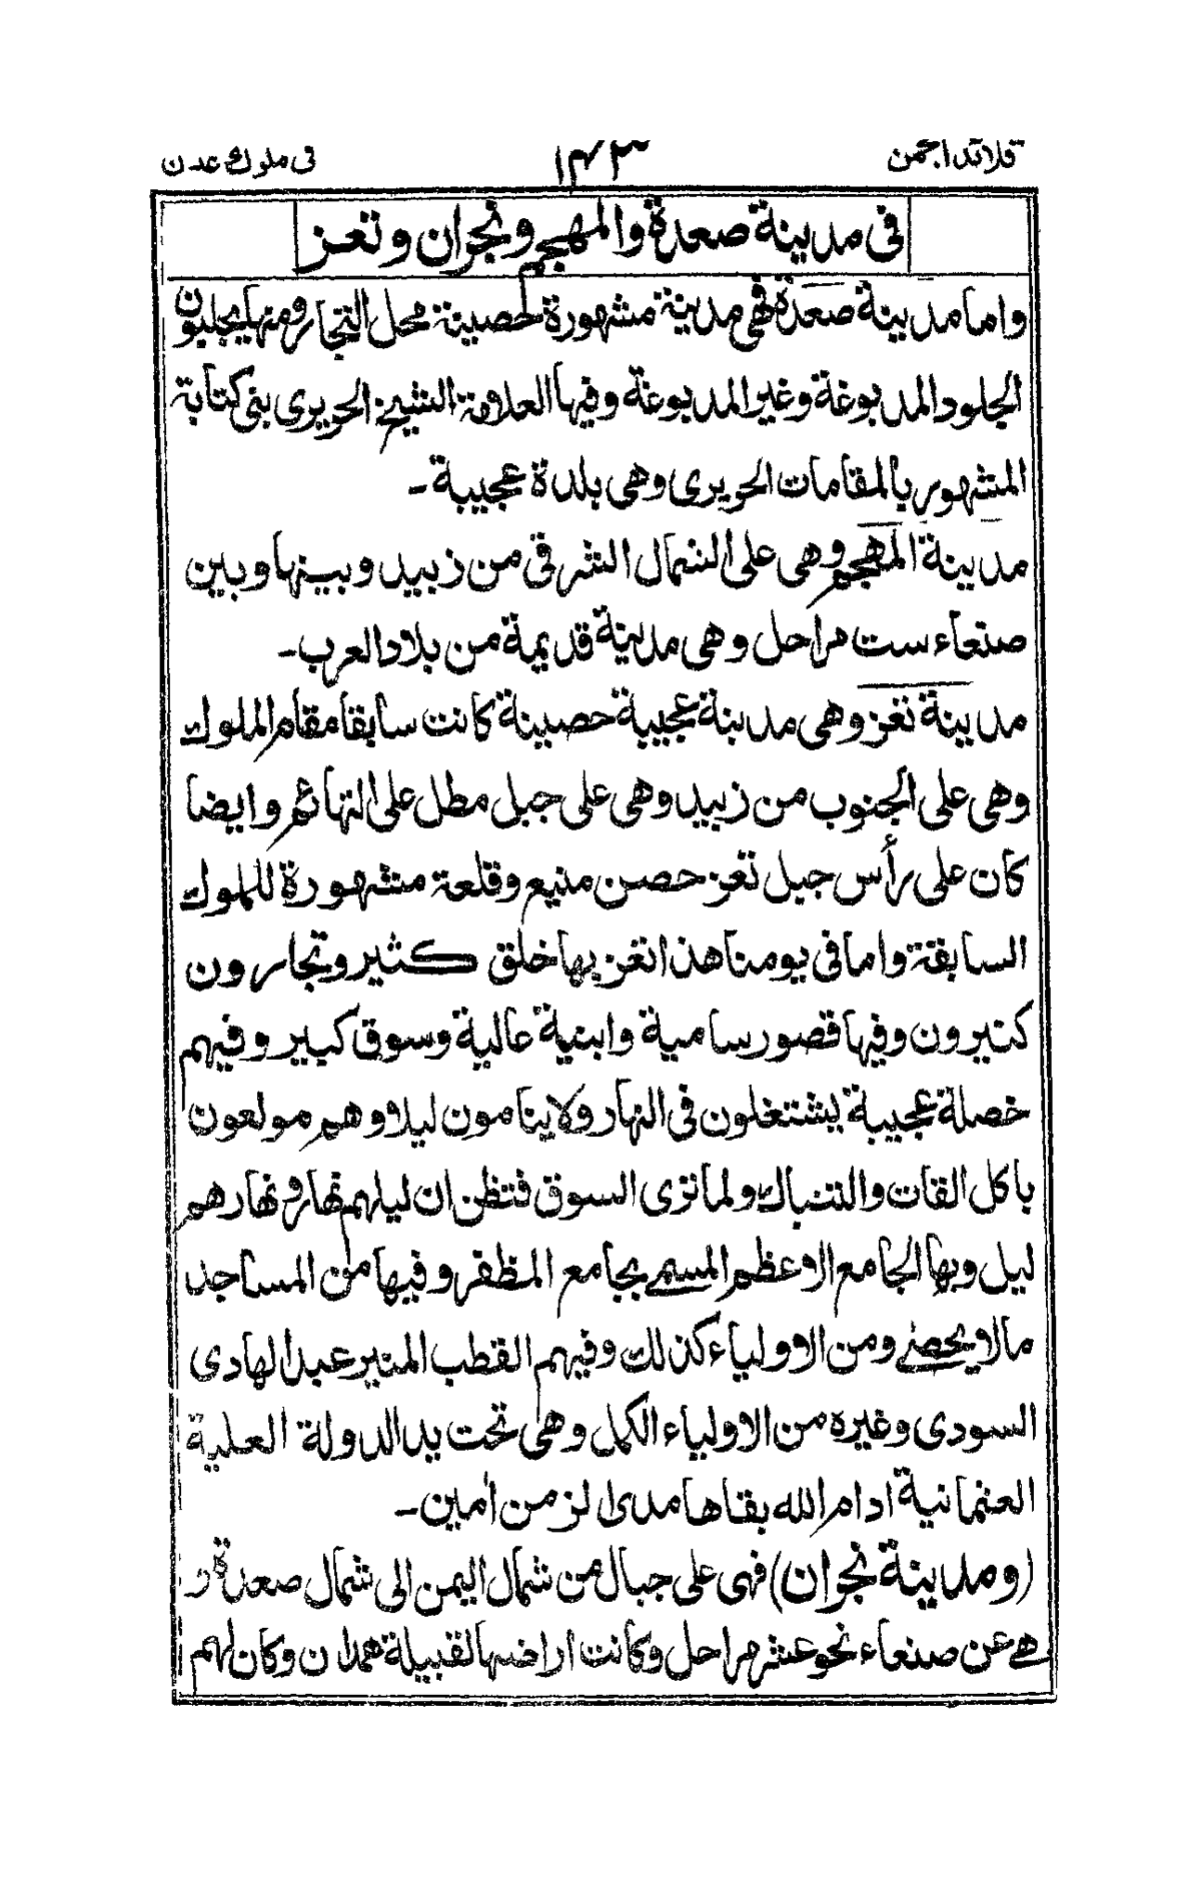 قلائد الجمن ١٤٣ فى ملوك عدن
فى مدينة صعدة والمهجم ونجران وتعز
واما مدينة صعدة فهى مدينة مشهورة حصينة محل التجار ومنها يجلبون
الجلود المدبوغة وغير المدبوغة وفيها العلامة الشيخ الحريرى بنى كتابة
المشهور بالمقامات الحريرى وهى بلدة عجيبة -
مدينة المهجم وهى على الشمال الشرقى من زبيد وبينها وبين
صنعاء ست مراحل وهى مدينة قديمة من بلاد العرب -
مدينة تعز وهى مدينة عجيبة حصينة كانت سابقا مقام الملوك
وهى على الجنوب من زبيد وهى على جبل مطل على التهائم وايضا
كان على رأس جبل تعز حصن منيع وقلعة مشهورة للملوك
السابقة واما فى يومنا هذا تعز بها خلق كثير وتجارون
كثيرون وفيها قصور سامية وابنية عالية وسوق كبير وفيهم
خصلة عجيبة يشتغلون فى النهار ولاينامون ليلا وهم مولعون
باكل القات والتنباك ولما ترى السوق فتظن ان ليلهم نهار ونهارهم
ليل وبها الجامع الاعظم المسمى بجامع المظفر وفيها من المساجد
مالا يحصى ومن الاولياء كذلك وفيهم القطب المنير عبد الهادى
السودى وغيره من الاولياء الكمل وهى تحت يد الدولة العلية
العثمانية ادام الله بقاها مدى الزمن اٰمين -
(ومدينة نجران) فهى على جبال من شمال اليمن الى شمال صعدة و
هى عن صنعاء نحو عشر مراحل وكانت اراضيها لقبيلة همدان وكان لهم